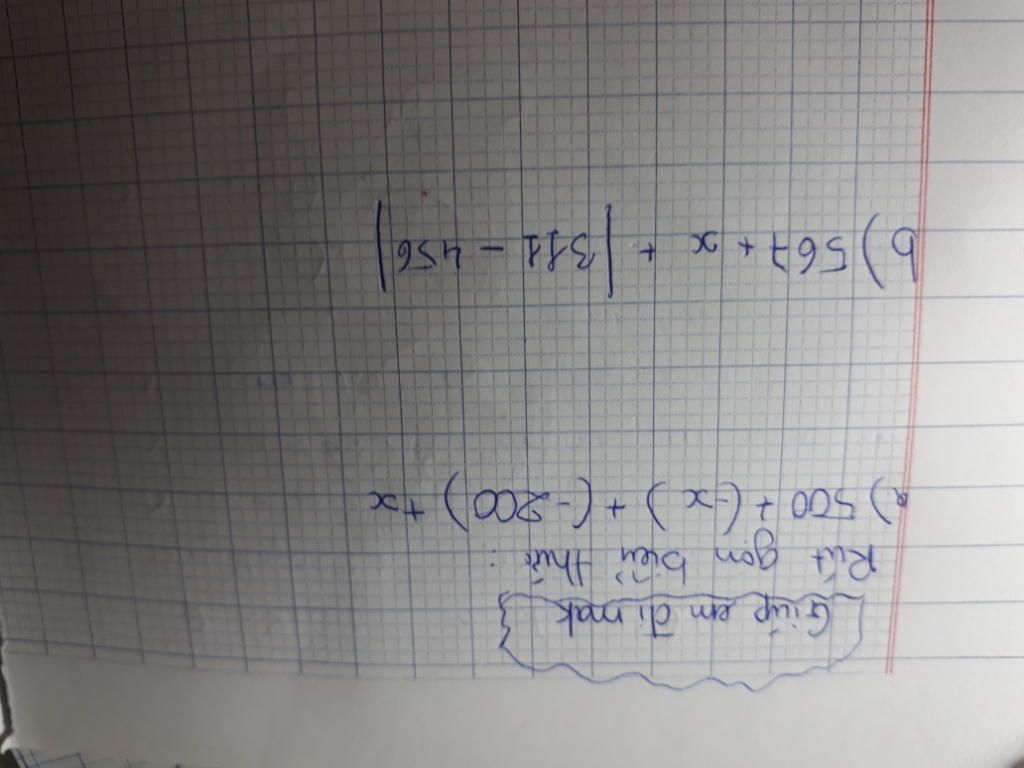 Giúp em đi mak
Rút gọn biểu thức :
a) 500 + (-x) + (-200) + x
b) 567 + x + |311 - 456|